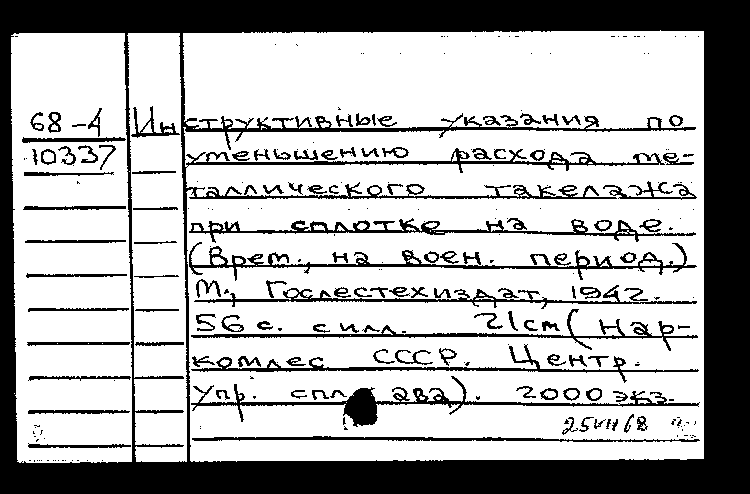 68-4 Инструктивные указания по
10337 уменьшению расхода ме-
таллического такелажа
при сплотке на воде.
(Врем., на воен. период.)
М., Гослестехиздат, 1942.
56 с. с илл. 21 см (Нар-
комлес СССР. Центр.
Упр. сплава). 2000 экз.
25 VII 68